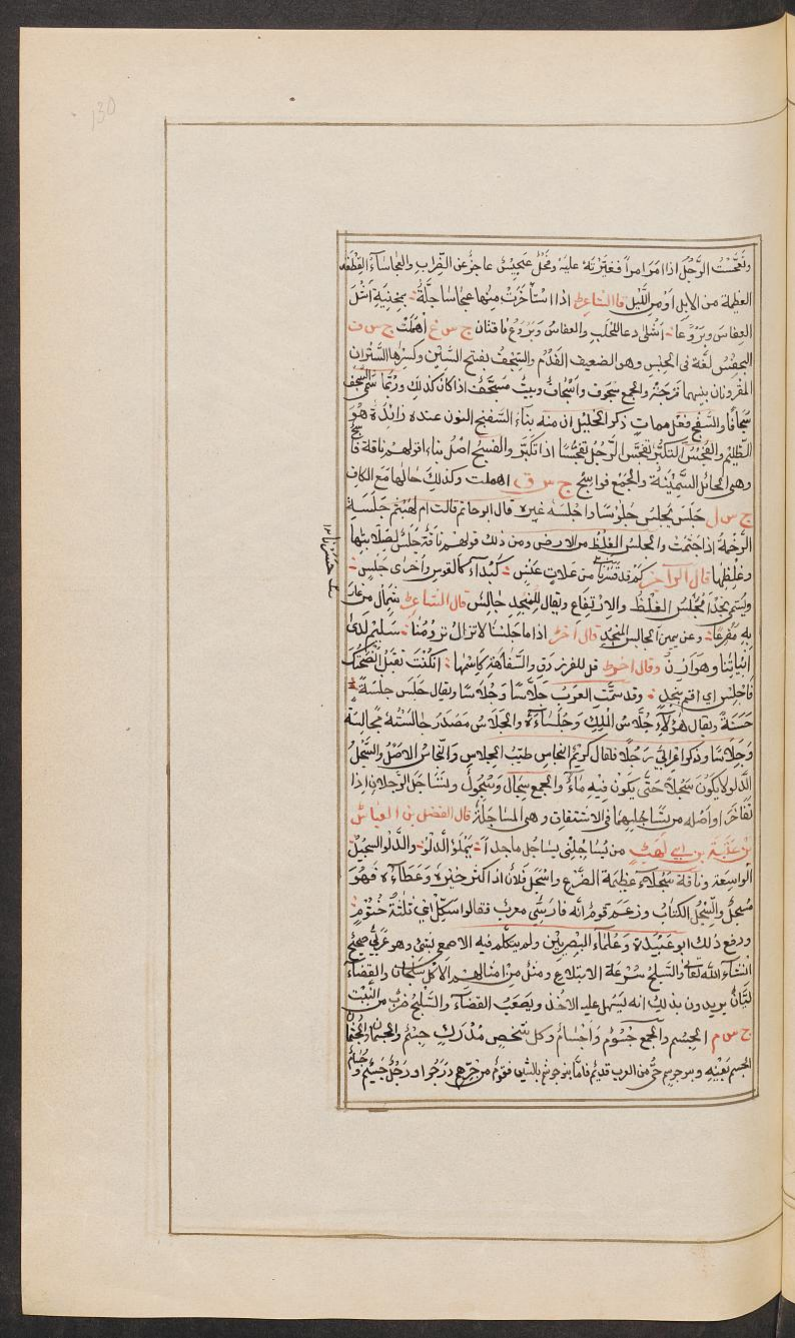 130
وتعجّست الرَّجُل اذا امَرَ امراً فغيّرتَه عليه وفحلٌ عجيسٌ عاجزٌ عن الضراب والعجاساءُ القِطعَة
العظيمة من الابل او من اللّيل قال الشاعر اذا استأخَرَتْ منها عجاسا جلّة بمحنيةٍ اشلَى
العِفاسَ وبَرْوَعا انشلى دعا للحَلب والعفاس وبَروَع ناقتان ج س غ أُهمِلَت ج س ف
الجِفْسُ لُغة فى الجِبس وهو الضعيف الفَدْم والسَّجْف بفتح السّين وكسرها السِّتران
المقرونان بينهما فُرجَة والجمع سُجوف واسْجاف وبيت مسجَّف اذا كان كذلك وربّما سُمّى السجف
سِجافاً والسفج فعل ممات ذكر الخليل ان منه بناء السَّفنّج النون عنده زائدة هُوَ
الظَّليم والفَجْسُ التكبّر تفجّسَ الرّجُل تفجّسًا اذا تكبّر والفسج اصل بناء قولهم ناقة فاسج
وهى الحائل السَّمينة والجمع فواسج ج س ق اهملت وكذلك حالها مع الكاف
ج س ل جَلَس يجلِسُ جُلوسًا واجلسَه غيره قال ابو حاتم قالت ام الهَيْثم جَلَسَتِ
الرَّخَمةُ اذا جَثَمَت والجلس الغَلِظ من الارض ومن ذلك قولهم ناقةٌ جَلْس لصلابتِها
وغِلظِها قال الراجز كم قد حَسَرنا من عَلاةٍ عَنْسِ كَبْداءَ كالقوس واُخرى جَلْسِ
حَسَرنا
ويُسمى نجد الجَلْس للغِلظ والارتفاع ويقال للمُنجِد جالِس قال الشاعر شِمالَ من غارَ
بِه مُفرِعًا وعن يمين الجالسِ المنجدِ قال آخر اذا ما جَلَسْنا لا تزالُ تزورُنا سُلَيم لدى
ابياتنا وهوازنُ وقال آخر قل للفرزدق والسَّفاهةُ كاسمها ان كنتَ تقبل نُصحتك
فاجلِس اى اقم بنجد وقد سمّت العرب جَلّاسًا وجُلاسًا ويقال جَلَس جِلسةً
حَسَنةً ويقال هؤلاء جُلّاسُ المَلِك وجُلَساؤه والجِلاس مَصدَر جالستُه مُجالسَةً
وجِلاسًا وذكر اعرابى رَجُلا فقال كريم النحاس طيّب الجلاس والنحاسُ الاصل والسَّجْلُ
الدّلو لا يكون سَجْلًا حتّى يكون فيه ماءٌ والجمع سِجال وسُجول وتساجَل الرَّجلان اذا
تفاخَرا واصله من تساجُلِهما فى الاستقاءِ وهى المساجَلَةُ قال الفضل بن العباس
بن عُتبة بن ابى لَهَب من يُساجِلنى يساجِل ماجداً يَملأُ الدّلوَ والدّلو السَّجيلُ
الواسِعَة وناقة سَجْلاءُ عظيمة الضَّرع واسْجَل فلانٌ اذا كثر خيرُه وعَطاءُه فهوَ
مُسجِلٌ والسِّجِلُ الكتابُ وزعم قومٌ انّه فارسىّ معرب فقالوا سكّل اى ثلثةُ خُتومٍ
ودفع ذلك ابو عُبَيدة وعُلماء البصريين ولم يتكلّم فيه الاصمعى بشئ وهو عَربىّ صحيحٌ
انشاء الله تعالى والسَّلج سُرعة الابتلاع ومثل من امثالهم الأكل سَلَجان والقضاءُ
ليّانٌ يريدون بذلك انه يَسهل عليه الاخذ ويصعب القضاءُ والسُّلَّج ضربٌ من النَّبت
ج س م الجسم والجمع جُسُوم وَاَجْسامٌ وكل شخصٍ مُدرَكٍ جسمٌ والجُسمان والجُثمان
الجسم بعَينه وبنو جوسم حىٌّ من العرب قديمٌ فامّا بنو جوشم بالشّين فقومٌ من جُرهم دَرَجُوا ورَجُلٌ جَسيمٌ وجُسامٌ